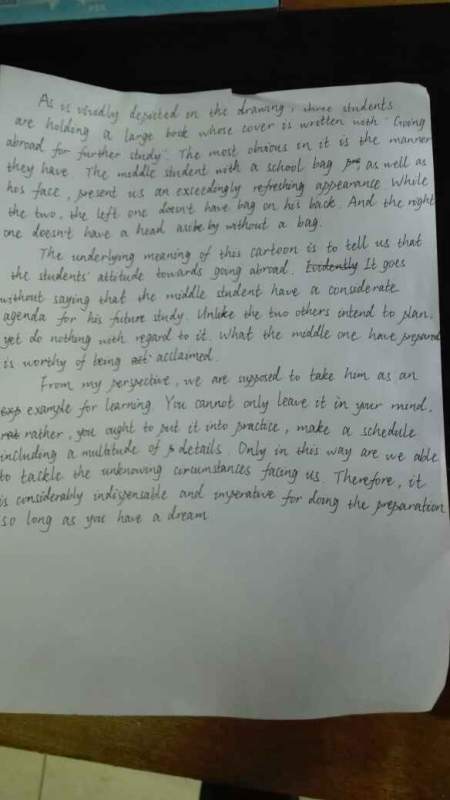 As is vividly depicted in the drawing, three students
are holding a large book whose cover is written with "Going
abroad for further study". The most obvious in it is the manner
they have. The middle student with a school bag as well as
his face, present us an exceedingly refreshing appearance. While
the two, the left one doesn't have bag on his back. And the right
one doesn't have a head by without a bag.
The underlying meaning of this cartoon is to tell us that
the students' attitude towards going abroad. Evidently It goes
without saying that the middle student have a considerate
agenda for his future study. Unlike the two others intend to plan,
yet do nothing with regard to it. What the middle one have prepared
is worthy of being acclaimed.
From my perspective, we are supposed to take him as an
example for learning. You cannot only leave it in your mind,
rather, you ought to put it into practice, make a schedule
including a multitude of details. Only in this way are we able
to tackle the unknowing circumstances facing us. Therefore, it
is considerably indispensable and imperative for doing the preparation
so long as you have a dream